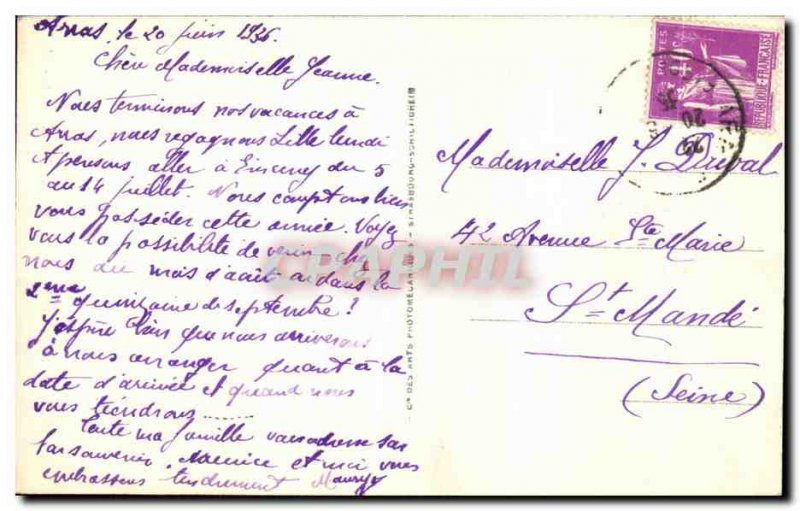 Arras, le 20 juin 1936
Chère Mademoiselle Jeanne.
Nous terminons nos vacances à
Arras, nous regagnons Lille lundi
& pensons aller à du 5
au 14 juillet. Nous comptons bien
vous posséder cette année. Voyez
vous la possibilité de venir chez
nous du mois d'août ou dans la
2eme quinzaine de septembre ?
J'espère bien que nous arriverons
à nous arranger quant à la
date d'arrivée et quand nous
vous tiendrons ......
Toute ma famille vous adresse son
bon souvenir. Maurice et moi vous
embrassons tendrement
Mademoiselle J. Duval
42 Avenue Ste Marie
St Mandé
(Seine)
Cie DES ARTS PHOTOMECANIQUES - STRASBOURG-SCHILTIGHEIM
POSTES
RÉPUBLIQUE FRANÇAISE
CPAPHIL